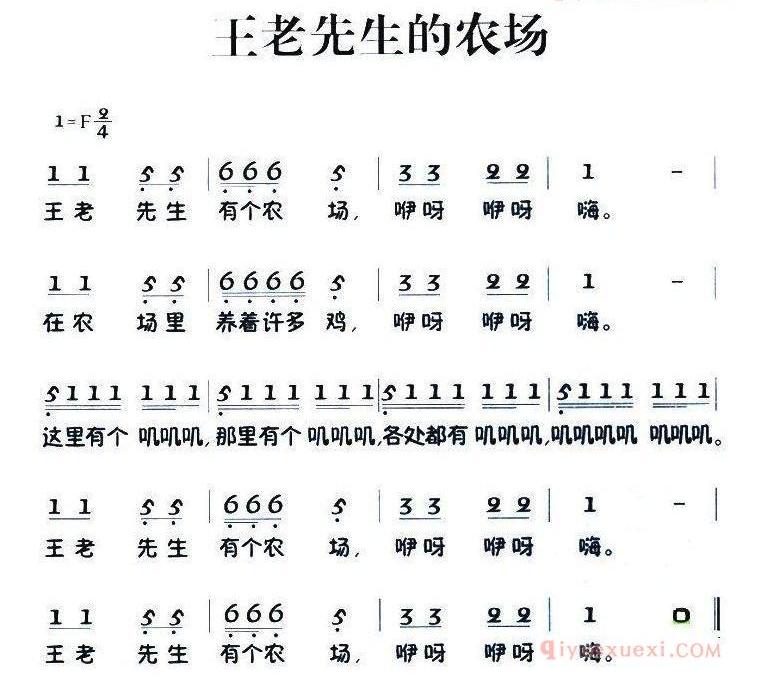 王老先生的农场
1=F 2/4
1 1 5 5 | 6 6 6 5 | 3 3 2 2 | 1 - |
王老 先生 有个农 场, 咿呀 咿呀 嗨。
1 1 5 5 | 6 6 6 6 5 | 3 3 2 2 | 1 - |
在农 场里 养着许多 鸡, 咿呀 咿呀 嗨。
5 1 1 1 1 1 1 | 5 1 1 1 1 1 1 | 5 1 1 1 1 1 1 | 5 1 1 1 1 1 1 |
这里有个 叽叽叽, 那里有个 叽叽叽, 各处都有 叽叽叽, 叽叽叽叽 叽叽叽。
1 1 5 5 | 6 6 6 5 | 3 3 2 2 | 1 - |
王老 先生 有个农 场, 咿呀 咿呀 嗨。
1 1 5 5 | 6 6 6 5 | 3 3 2 2 | 1 0 ‖
王老 先生 有个农 场, 咿呀 咿呀 嗨。